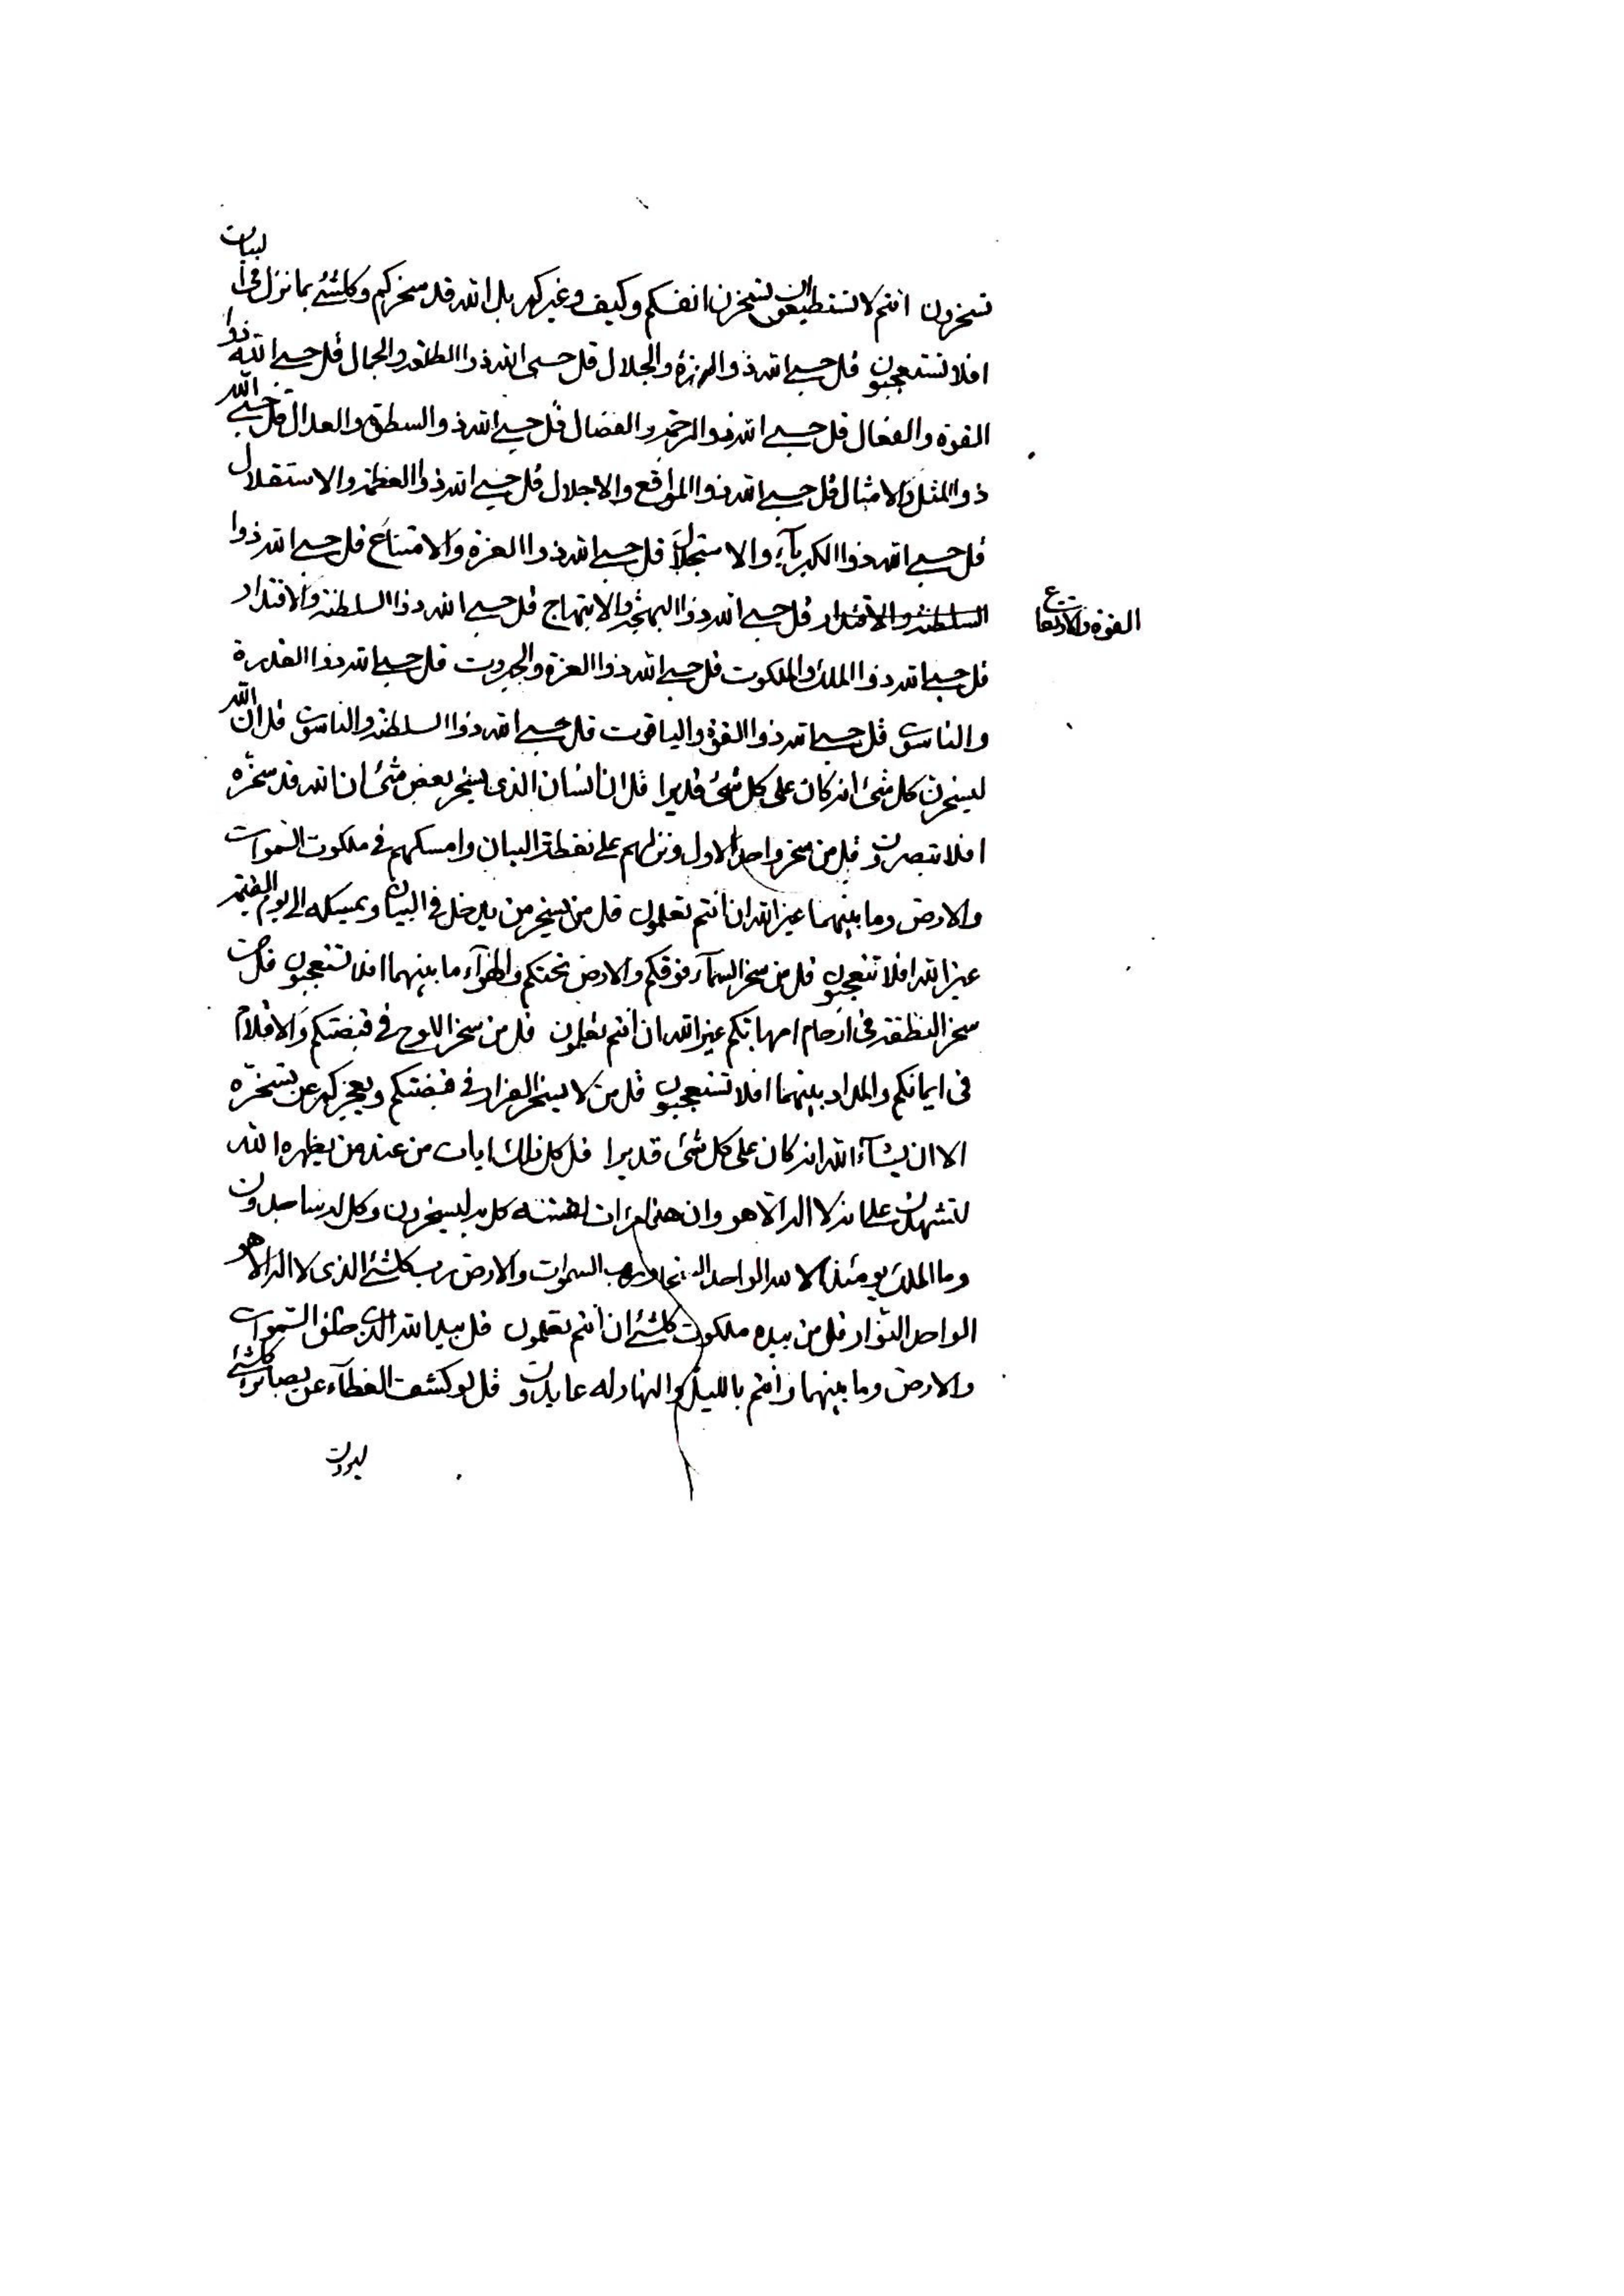 تسخرون انتم لا تستطيعون ان تسخرن انفسكم وكيف وغيركم بل الله قد سخركم وكلشئ بما نزل فى البيان
افلا تستعجبون قل حسبى الله ذو العزة والجلال قل حسبى الله ذوا الطلعة والجمال قل حسبى الله ذوا
القوة والفعال قل حسبى الله ذو الرحمة والفضال قل حسبى الله ذو السطوة والعدال قل حسبى الله
ذوا المثل والامثال قل حسبى الله ذوا المواقع والاجلال قل حسبى الله ذوا العظمة والاستقلال
قل حسبى الله ذوا الكبرياء والاستجلال قل حسبى الله ذوا العزة والامتناع قل حسبى الله ذوا
القوة والارتفاع
السلطنة والاقتدار قل حسبى الله ذوا البهجة والابتهاج قل حسبى الله ذوا السلطنة والاقتدار
قل حسبى الله ذوا الملك والملكوت قل حسبى الله ذوا العزة والجبروت قل حسبى الله ذوا القدرة
والناسوت قل حسبى الله ذوا القوة والياقوت قل حسبى الله ذوا السلطنة والناسوت قل ان الله
ليسخرن كل شئ انه كان على كل شئ قديرا قل ان انسان الذى يسخر بعض شئ ان الله قد سخره
افلا تبصرون قل من سخر واحد الاول ونزلهم على نقطة البيان وامسكهم فى ملكوت السموات
والارض وما بينهما غير الله ان انتم تعلمون قل من يسخر من يدخل فى البيان ويمسكه الى يوم القيمة
غير الله افلا تتعجبون قل من سخر السماء فوقكم والارض تحتكم والهواء ما بينهما افلا تتعجبون قل من
سخر النطفة فى ارحام امهاتكم غير الله ان انتم تعلمون قل من سخر اللوح فى قبضتكم والاقلام
فى ايمانكم والمداد بينهما افلا تستعجبون قل من لا يسخر فى قبضتكم ويعجزكم عن تسخره
الا ان يشاء الله انه كان على كل شئ قديرا قل كل ذلك ايات من عند من يظهره الله
لتشهدن على انه لا اله الا هو وان كل به ليسخرون وكل له ساجدون
وما الملك يومئذ الا لله الواحد رب السموات والارض رب كلشئ الذى لا اله الا هو
الواحد النوار قل من بيده ملكوت كلشئ ان انتم تعلمون قل بيد الله الذى خلق السموات
والارض وما بينهما وانتم بالليل والنهار له عابدون قل لو كشف الغطاء عن بصائر كلشئ
ليرون